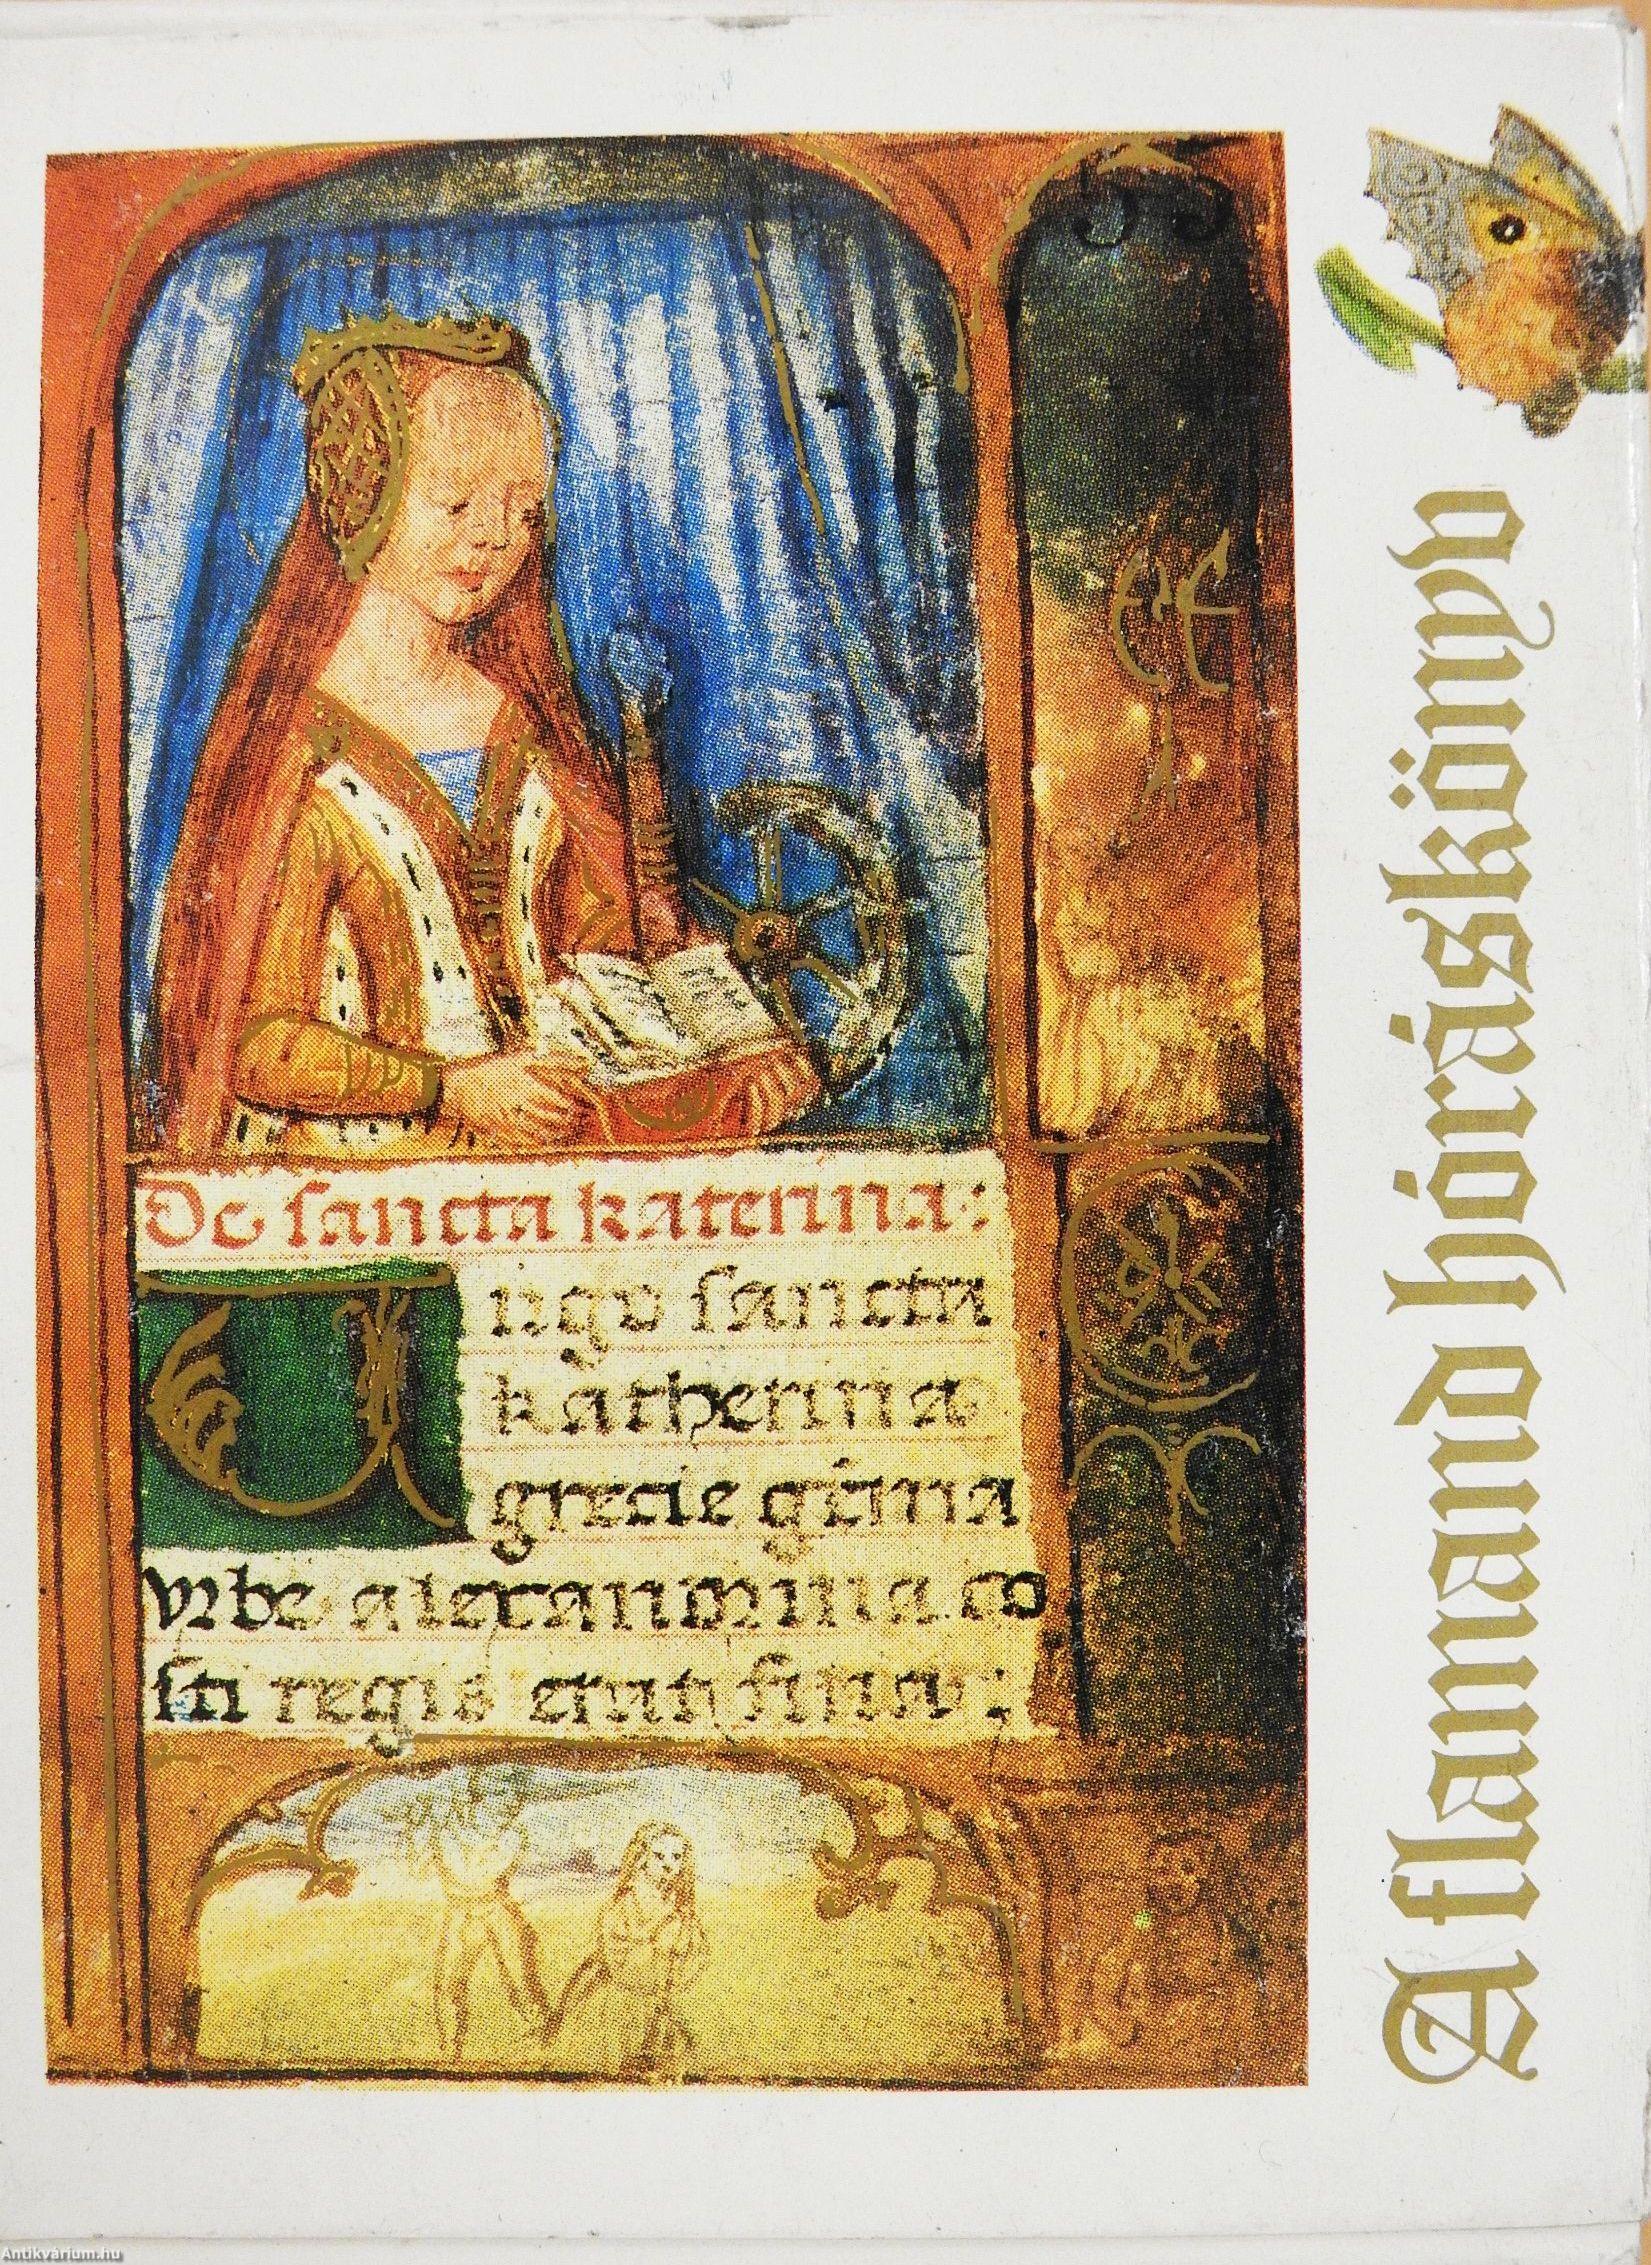 De sancta katerina:
Uirgo sancta
katherina
grecie gēma
urbe alexandrina co
sti regis erat filia:
A flamand hóráskönyv
Antikvárium.hu